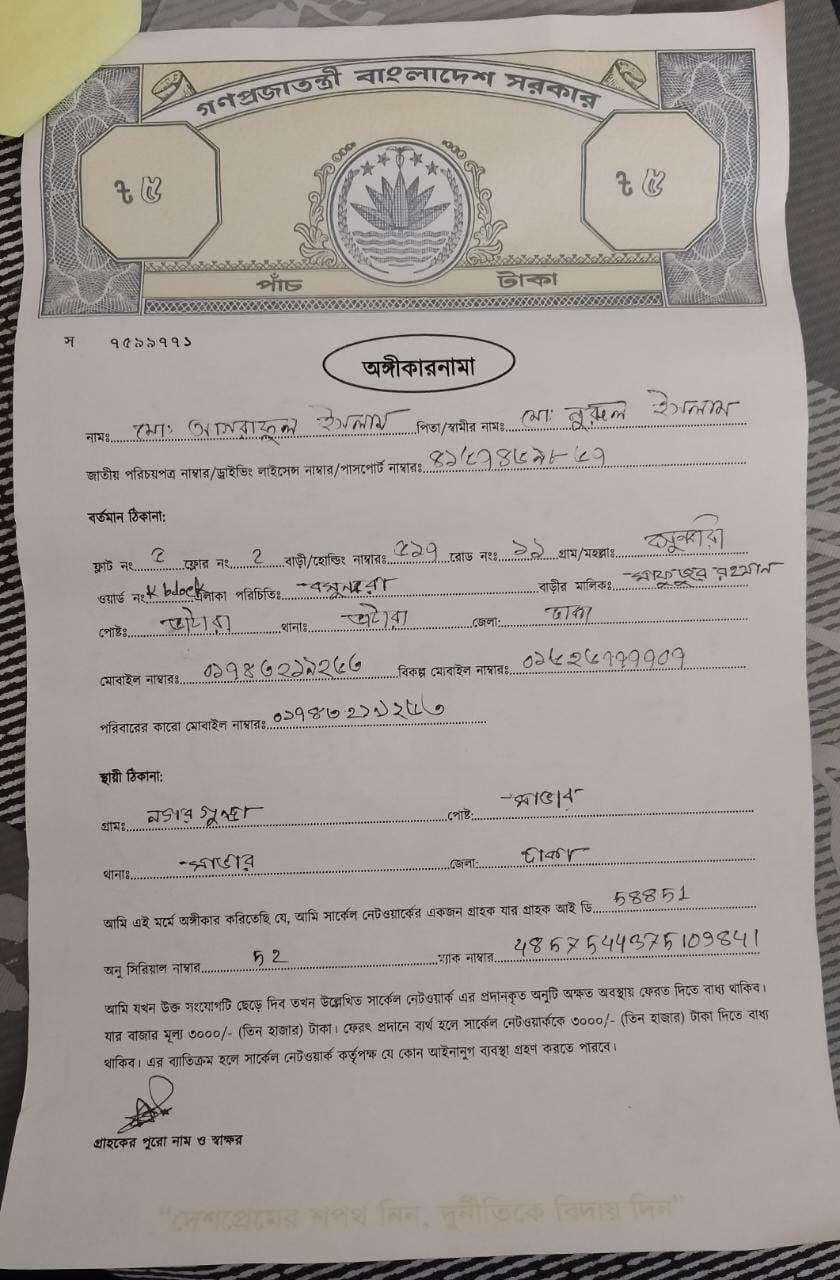 গণপ্রজাতন্ত্রী বাংলাদেশ সরকার
৳ ৫ ৳ ৫
পাঁচ টাকা
স ৭৫৯৯৭৭৯
অঙ্গীকারনামা
নামঃ মোঃ আসরাফুল ইসলাম পিতা/স্বামীর নামঃ মোঃ নুরুল ইসলাম
জাতীয় পরিচয়পত্র নাম্বার/ড্রাইভিং লাইসেন্স নাম্বার/পাসপোর্ট নাম্বারঃ
বর্তমান ঠিকানা:
ফ্লাট নং ফ্লোর নং 2 বাড়ী/হোল্ডিং নাম্বারঃ ৫১৭ রোড নংঃ ১১ গ্রাম/মহল্লাঃ
ওয়ার্ড নং K block এলাকা পরিচিতিঃ বসুন্ধরা বাড়ীর মালিকঃ রহমান
পোষ্টঃ ভাটারা থানাঃ ভাটারা জেলা: ঢাকা
মোবাইল নাম্বারঃ বিকল্প মোবাইল নাম্বারঃ
পরিবারের কারো মোবাইল নাম্বারঃ
স্থায়ী ঠিকানা:
গ্রামঃ পোষ্ট: সাভার
থানাঃ সাভার জেলা: ঢাকা
আমি এই মর্মে অঙ্গীকার করিতেছি যে, আমি সার্কেল নেটওয়ার্কের একজন গ্রাহক যার গ্রাহক আই ডি 58851
অনু সিরিয়াল নাম্বার 52 ম্যাক নাম্বার 4857544375109841
আমি যখন উক্ত সংযোগটি ছেড়ে দিব তখন উল্লেখিত সার্কেল নেটওয়ার্ক এর প্রদানকৃত অনুটি অক্ষত অবস্থায় ফেরত দিতে বাধ্য থাকিব।
যার বাজার মূল্য ৩০০০/- (তিন হাজার) টাকা। ফেরৎ প্রদানে ব্যর্থ হলে সার্কেল নেটওয়ার্ককে ৩০০০/- (তিন হাজার) টাকা দিতে বাধ্য
থাকিব। এর ব্যতিক্রম হলে সার্কেল নেটওয়ার্ক কর্তৃপক্ষ যে কোন আইনানুগ ব্যবস্থা গ্রহণ করতে পারবে।
গ্রাহকের পুরো নাম ও স্বাক্ষর
"দেশপ্রেমের শপথ নিন, দুর্নীতিকে বিদায় দিন"